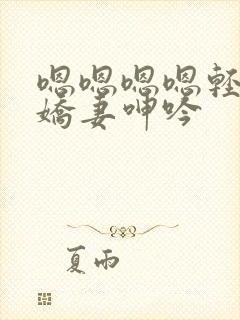 嗯嗯嗯嗯輕
嬌妻呻吟
夏雨